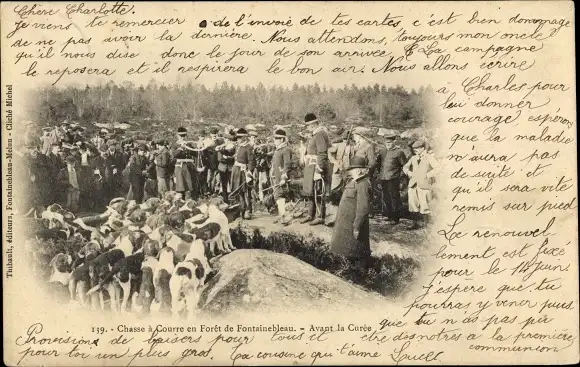 Chère Charlotte.
Je viens te remercier de l'envoie de tes cartes c'est bien dommage
de ne pas avoir la dernière. Nous attendons, toujours mon oncle
qu'il nous dise donc le jour de son arrivée. La campagne
le reposera et il respirera le bon air. Nous allons écrire
à Charles pour
lui donner
courage espérons
que la maladie
n'aura pas
de suite et
qu'il sera vite
remis sur pied
Le renouvel
lement est fixé
pour le 14 Juin
J'espère que tu
pourras y venir puis
que tu n'as pas pu
être des notres à la première
communion
Provisions de baisers pour tous et
pour toi un plus gros. Ta cousine qui t'aime
Thibault, éditeurs, Fontainebleau-Melun - Cliché Michel
139. - Chasse à Courre en Forêt de Fontainebleau. - Avant la Curée